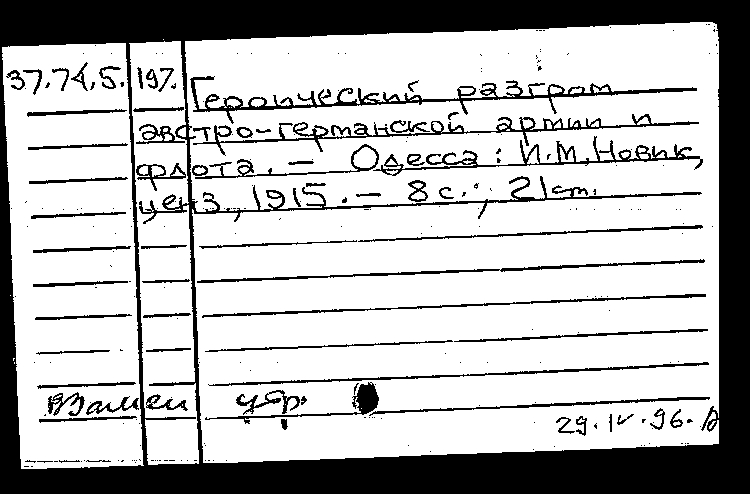 37.74.5.197. Героический разгром
австро-германской армии и
флота. — Одесса: И.М. Новик,
ценз, 1915. — 8 с.; 21 cm.
Взамен утр.
29.IV.96.